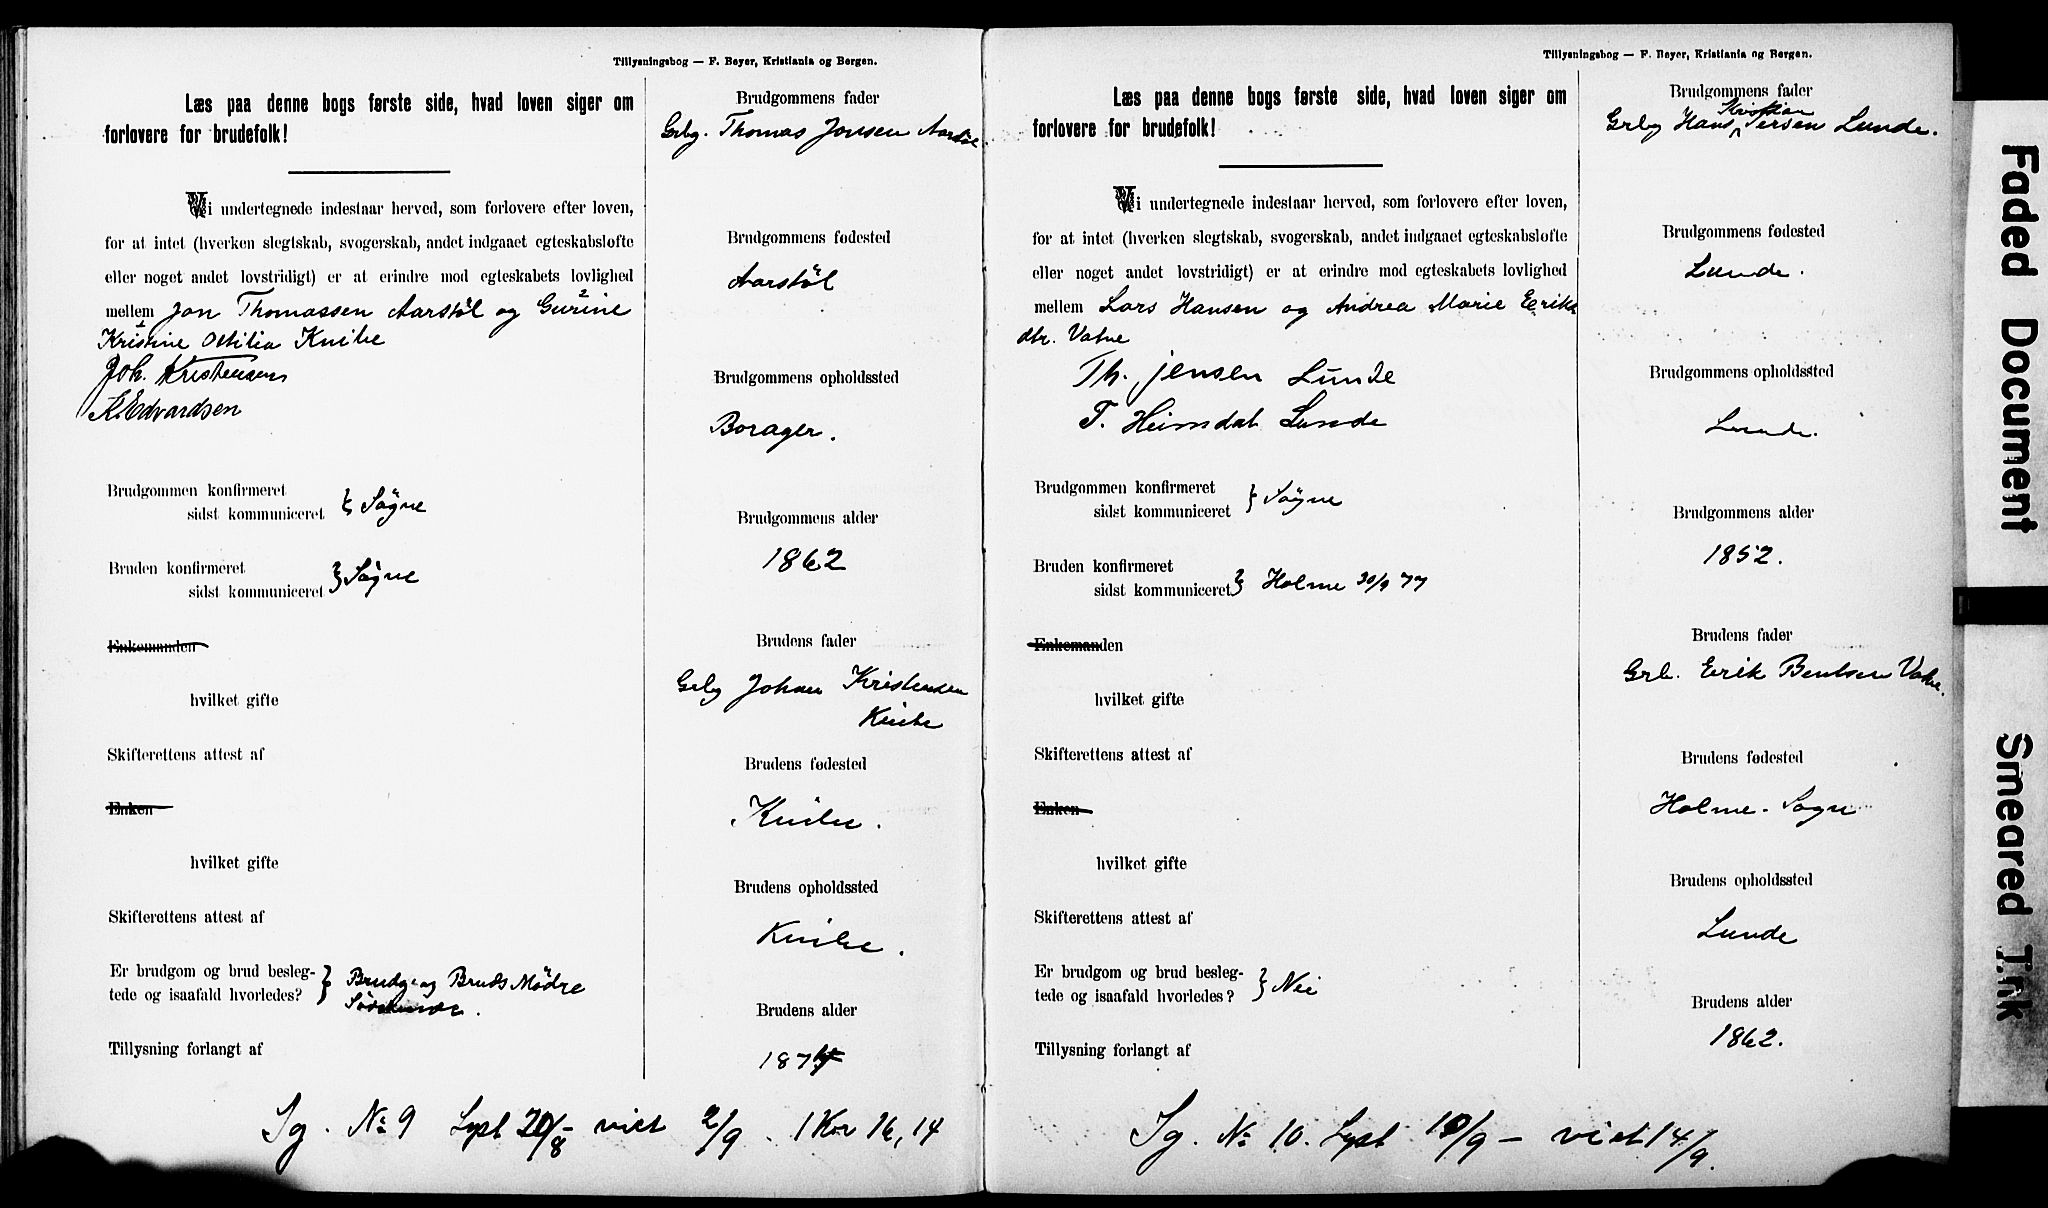 Tillysningsbog — F. Beyer, Kristiania og Bergen.
Læs paa denne bogs første side, hvad loven siger om
forlovere for brudefolk!
Vi undertegnede indestaar herved, som forlovere efter loven,
for at intet (hverken slegtskab, svogerskab, andet indgaaet egteskabsløfte
eller noget andet lovstridigt) er at erindre mod egteskabets lovlighed
mellem Jon Thomassen Aarstöl og Gurine 2
1 Kristine Otilia Knibe
Joh. Kristensen
K Edvardsen
Brudgommen konfirmeret
sidst kommuniceret } Søgne
Bruden konfirmeret
sidst kommuniceret } Søgne
Enkemanden
hvilket gifte
Skifterettens attest af
Enken
hvilket gifte
Skifterettens attest af
Er brudgom og brud besleg-
tede og isaafald hvorledes? } Brudg. og Bruds Mødre
Søskende.
Tillysning forlangt af
Brudgommens fader
Grbg. Thomas Jonsen Aarstöl
Brudgommens fødested
Aarstöl
Brudgommens opholdssted
Borager.
Brudgommens alder
1862
Brudens fader
Grbg Johan Kristensen
Knibe
Brudens fødested
Knibe.
Brudens opholdssted
Knibe.
Brudens alder
187
Sg. No 9 Lyst 20/8 – viet 2/9. 1 Kor 16, 14
Tillysningsbog — F. Beyer, Kristiania og Bergen.
Læs paa denne bogs første side, hvad loven siger om
forlovere for brudefolk!
Vi undertegnede indestaar herved, som forlovere efter loven,
for at intet (hverken slegtskab, svogerskab, andet indgaaet egteskabsløfte
eller noget andet lovstridigt) er at erindre mod egteskabets lovlighed
mellem Lars Hansen og Andrea Marie Eriks
dtr. Vatne
Th. Jensen Lunde
T. Heimdal Lunde
Brudgommen konfirmeret
sidst kommuniceret } Søgne
Bruden konfirmeret
sidst kommuniceret } Holme 30/9 77
Enkemanden
hvilket gifte
Skifterettens attest af
Enken
hvilket gifte
Skifterettens attest af
Er brudgom og brud besleg-
tede og isaafald hvorledes? } Nei
Tillysning forlangt af
Brudgommens fader
Kristian
Grbg Hans Lunde.
Brudgommens fødested
Lunde.
Brudgommens opholdssted
Lunde.
Brudgommens alder
1852.
Brudens fader
Grb. Erik Bentsen Vatne.
Brudens fødested
Holme-Sogn
Brudens opholdssted
Lunde
Brudens alder
1862.
Sg. No 10. Lyst 10/9 – viet 14/9.
Faded Document
Smeared Ink